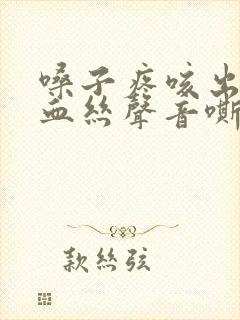 嗓子疼咳出
血絲聲音嘶
款絲弦